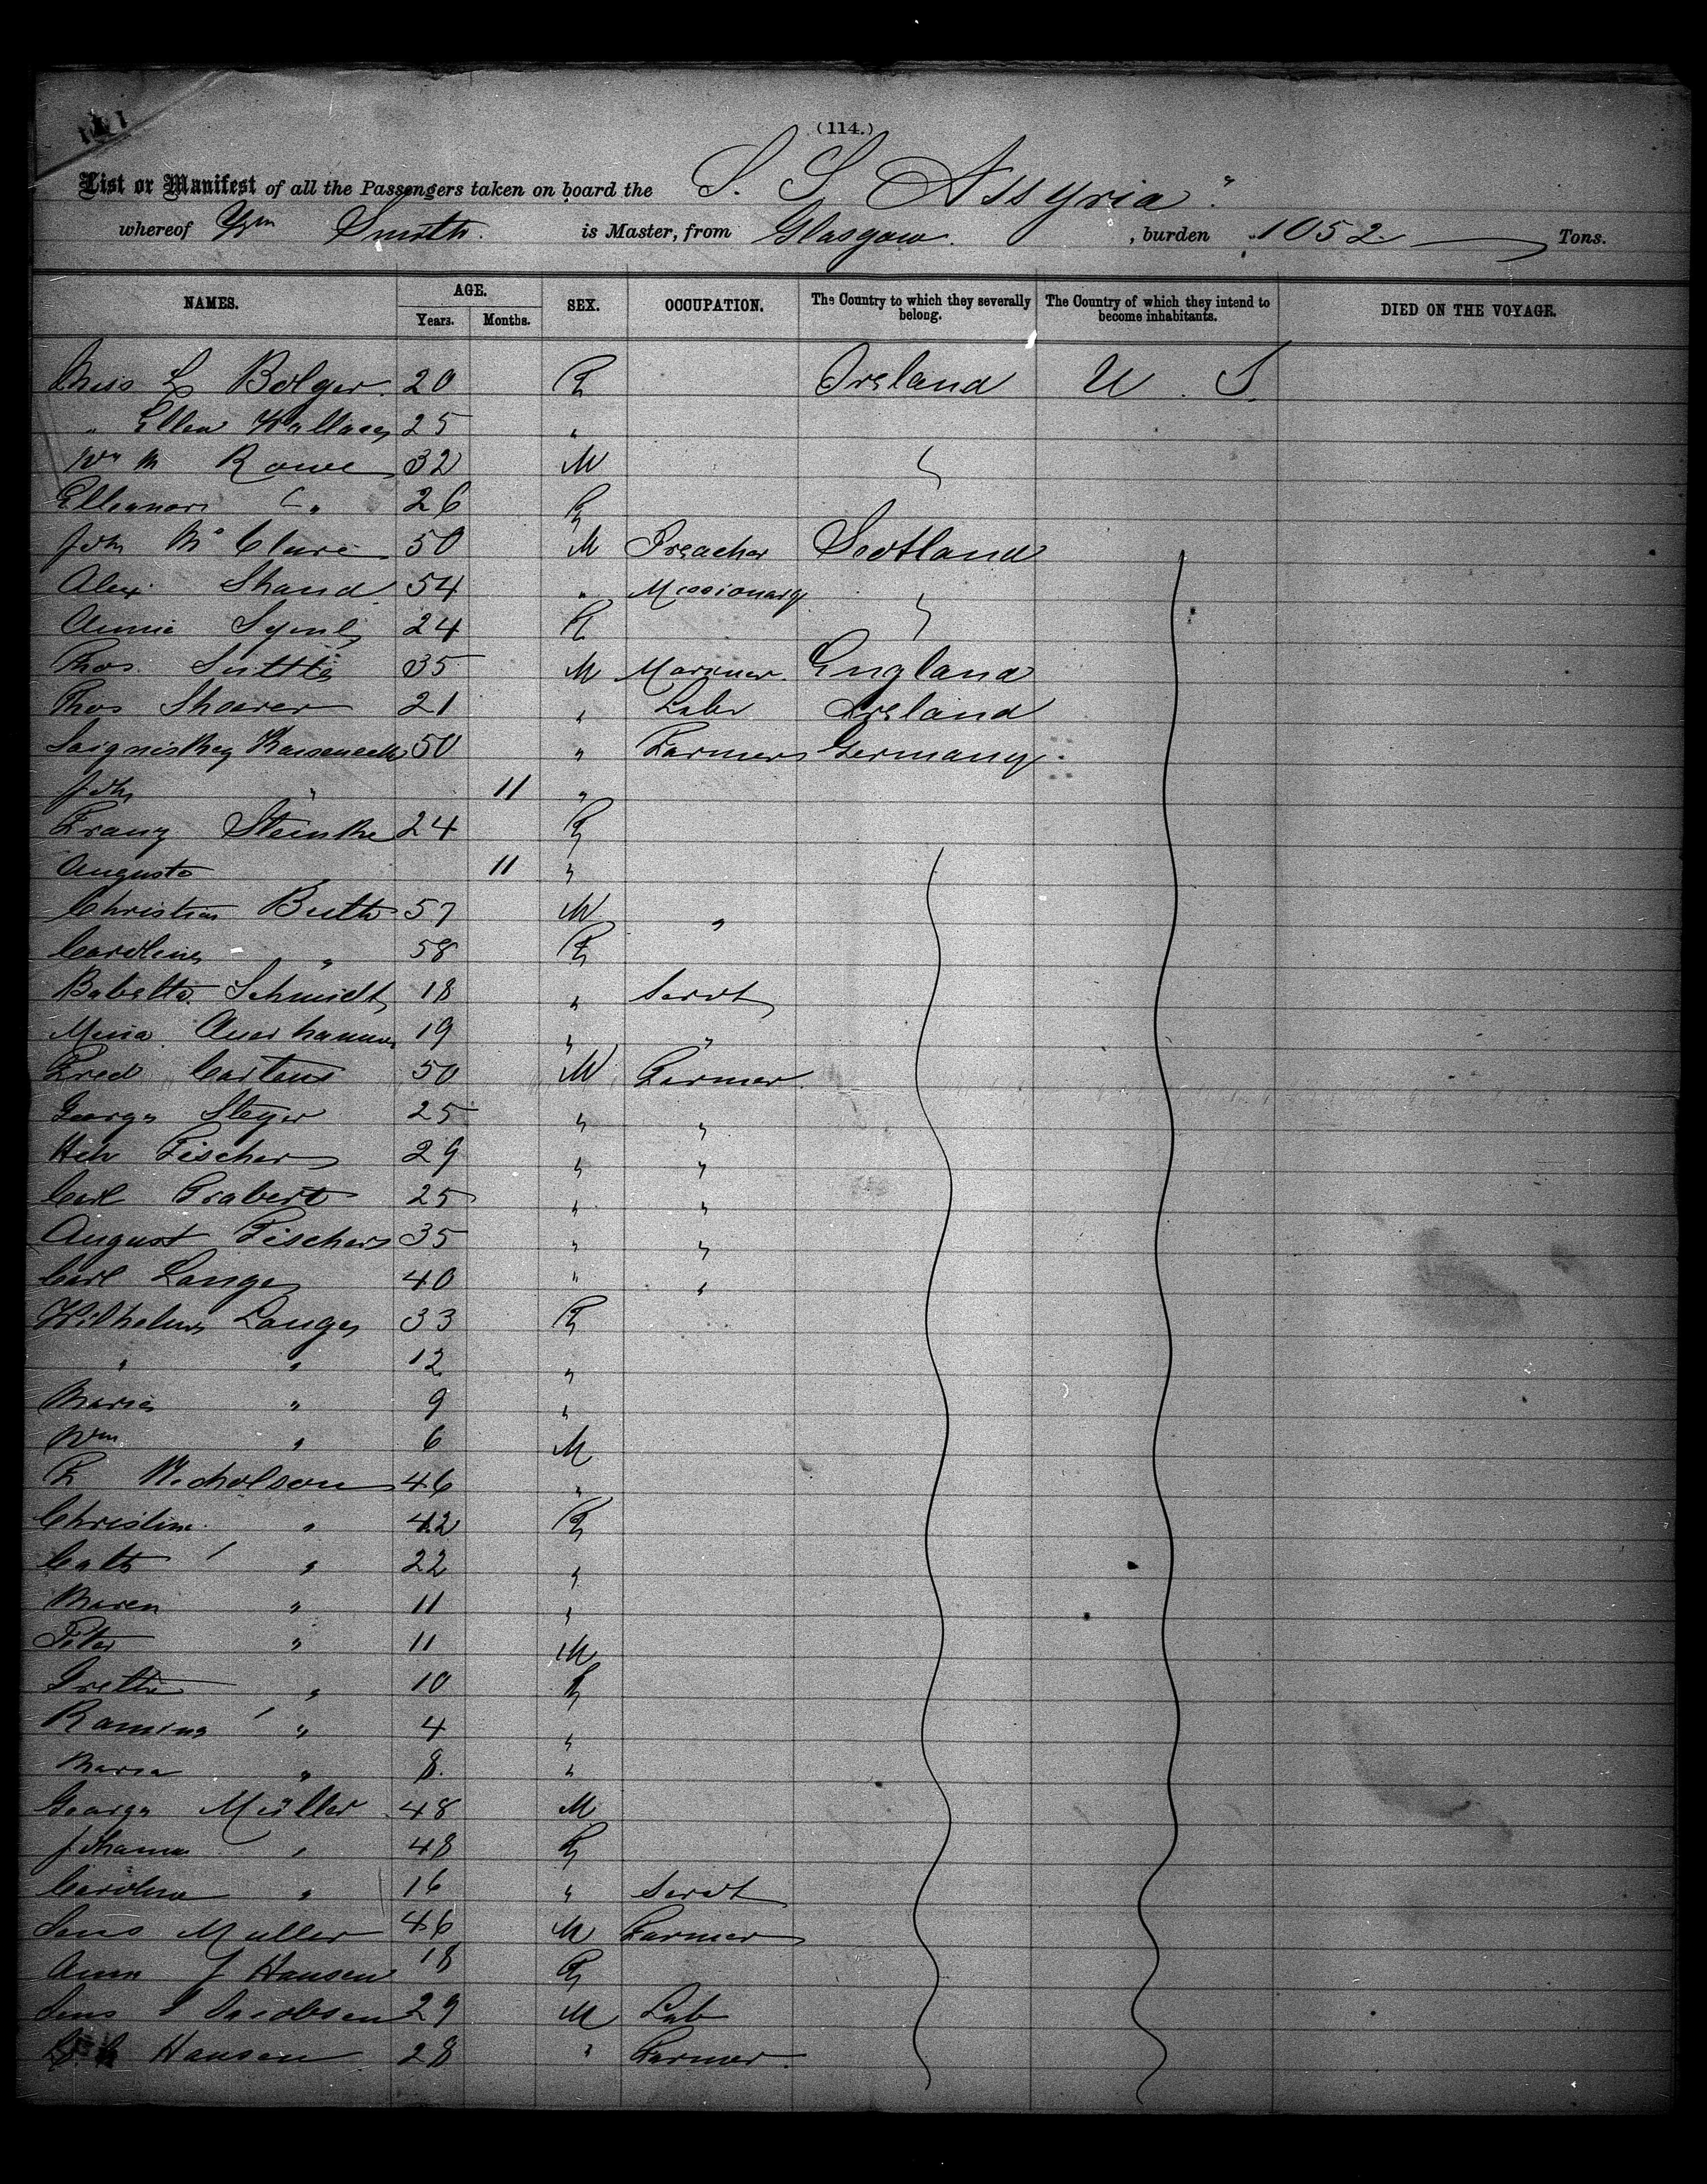 (114.)
List or Manifest of all the Passengers taken on board the S. S. Assyria
whereof Wm Smith is Master, from Glasgow, burden 1052 Tons.
NAMES. AGE. SEX. OCCUPATION. The Country to which they severally belong. The Country of which they intend to become inhabitants. DIED ON THE VOYAGE.
Years. Months.
Miss L Bolger 20 F Ireland U. S.
" Ellen Wallace 25 "
Wm M Rowe 32 M "
Elleanor " 26 F
John McClure 50 M Preacher Scotland
Alex Shand 54 " Missionary "
Annie 24 F
Thos. Suttle 35 M Mariner England
Thos Shearer 21 " Labr Ireland
50 " Farmer Germany
John " 11 "
Franz Steinke 24 F
Augusta 11 "
Christian Buth 57 M "
Caroline " 58 F
Babette Schmidt 18 " Servt
Mina 19 " "
Fred Carstens 50 M Farmer
George Steyer 25 " "
Hch Fischer 29 " "
Carl Grabert 25 " "
August Fischer 35 " "
Carl Lange 40 " "
Wilhelm Lange 33 F
" " 12 "
Maria " 9 "
Wm " 6 M
F Nicholson 46 "
Christine " 42 F
Cath " 22 "
Maren " 11 "
Peter " 11 M
Grethe " 10 F
" 4 "
Maria " 8 "
George Müller 48 M
Johanna " 48 F
Carolina " 16 " Servt
Jens Muller 46 M Farmer
Anna J Hansen 18 F
Jens Jacobsen 29 M Lab
Hansen 28 " Farmer